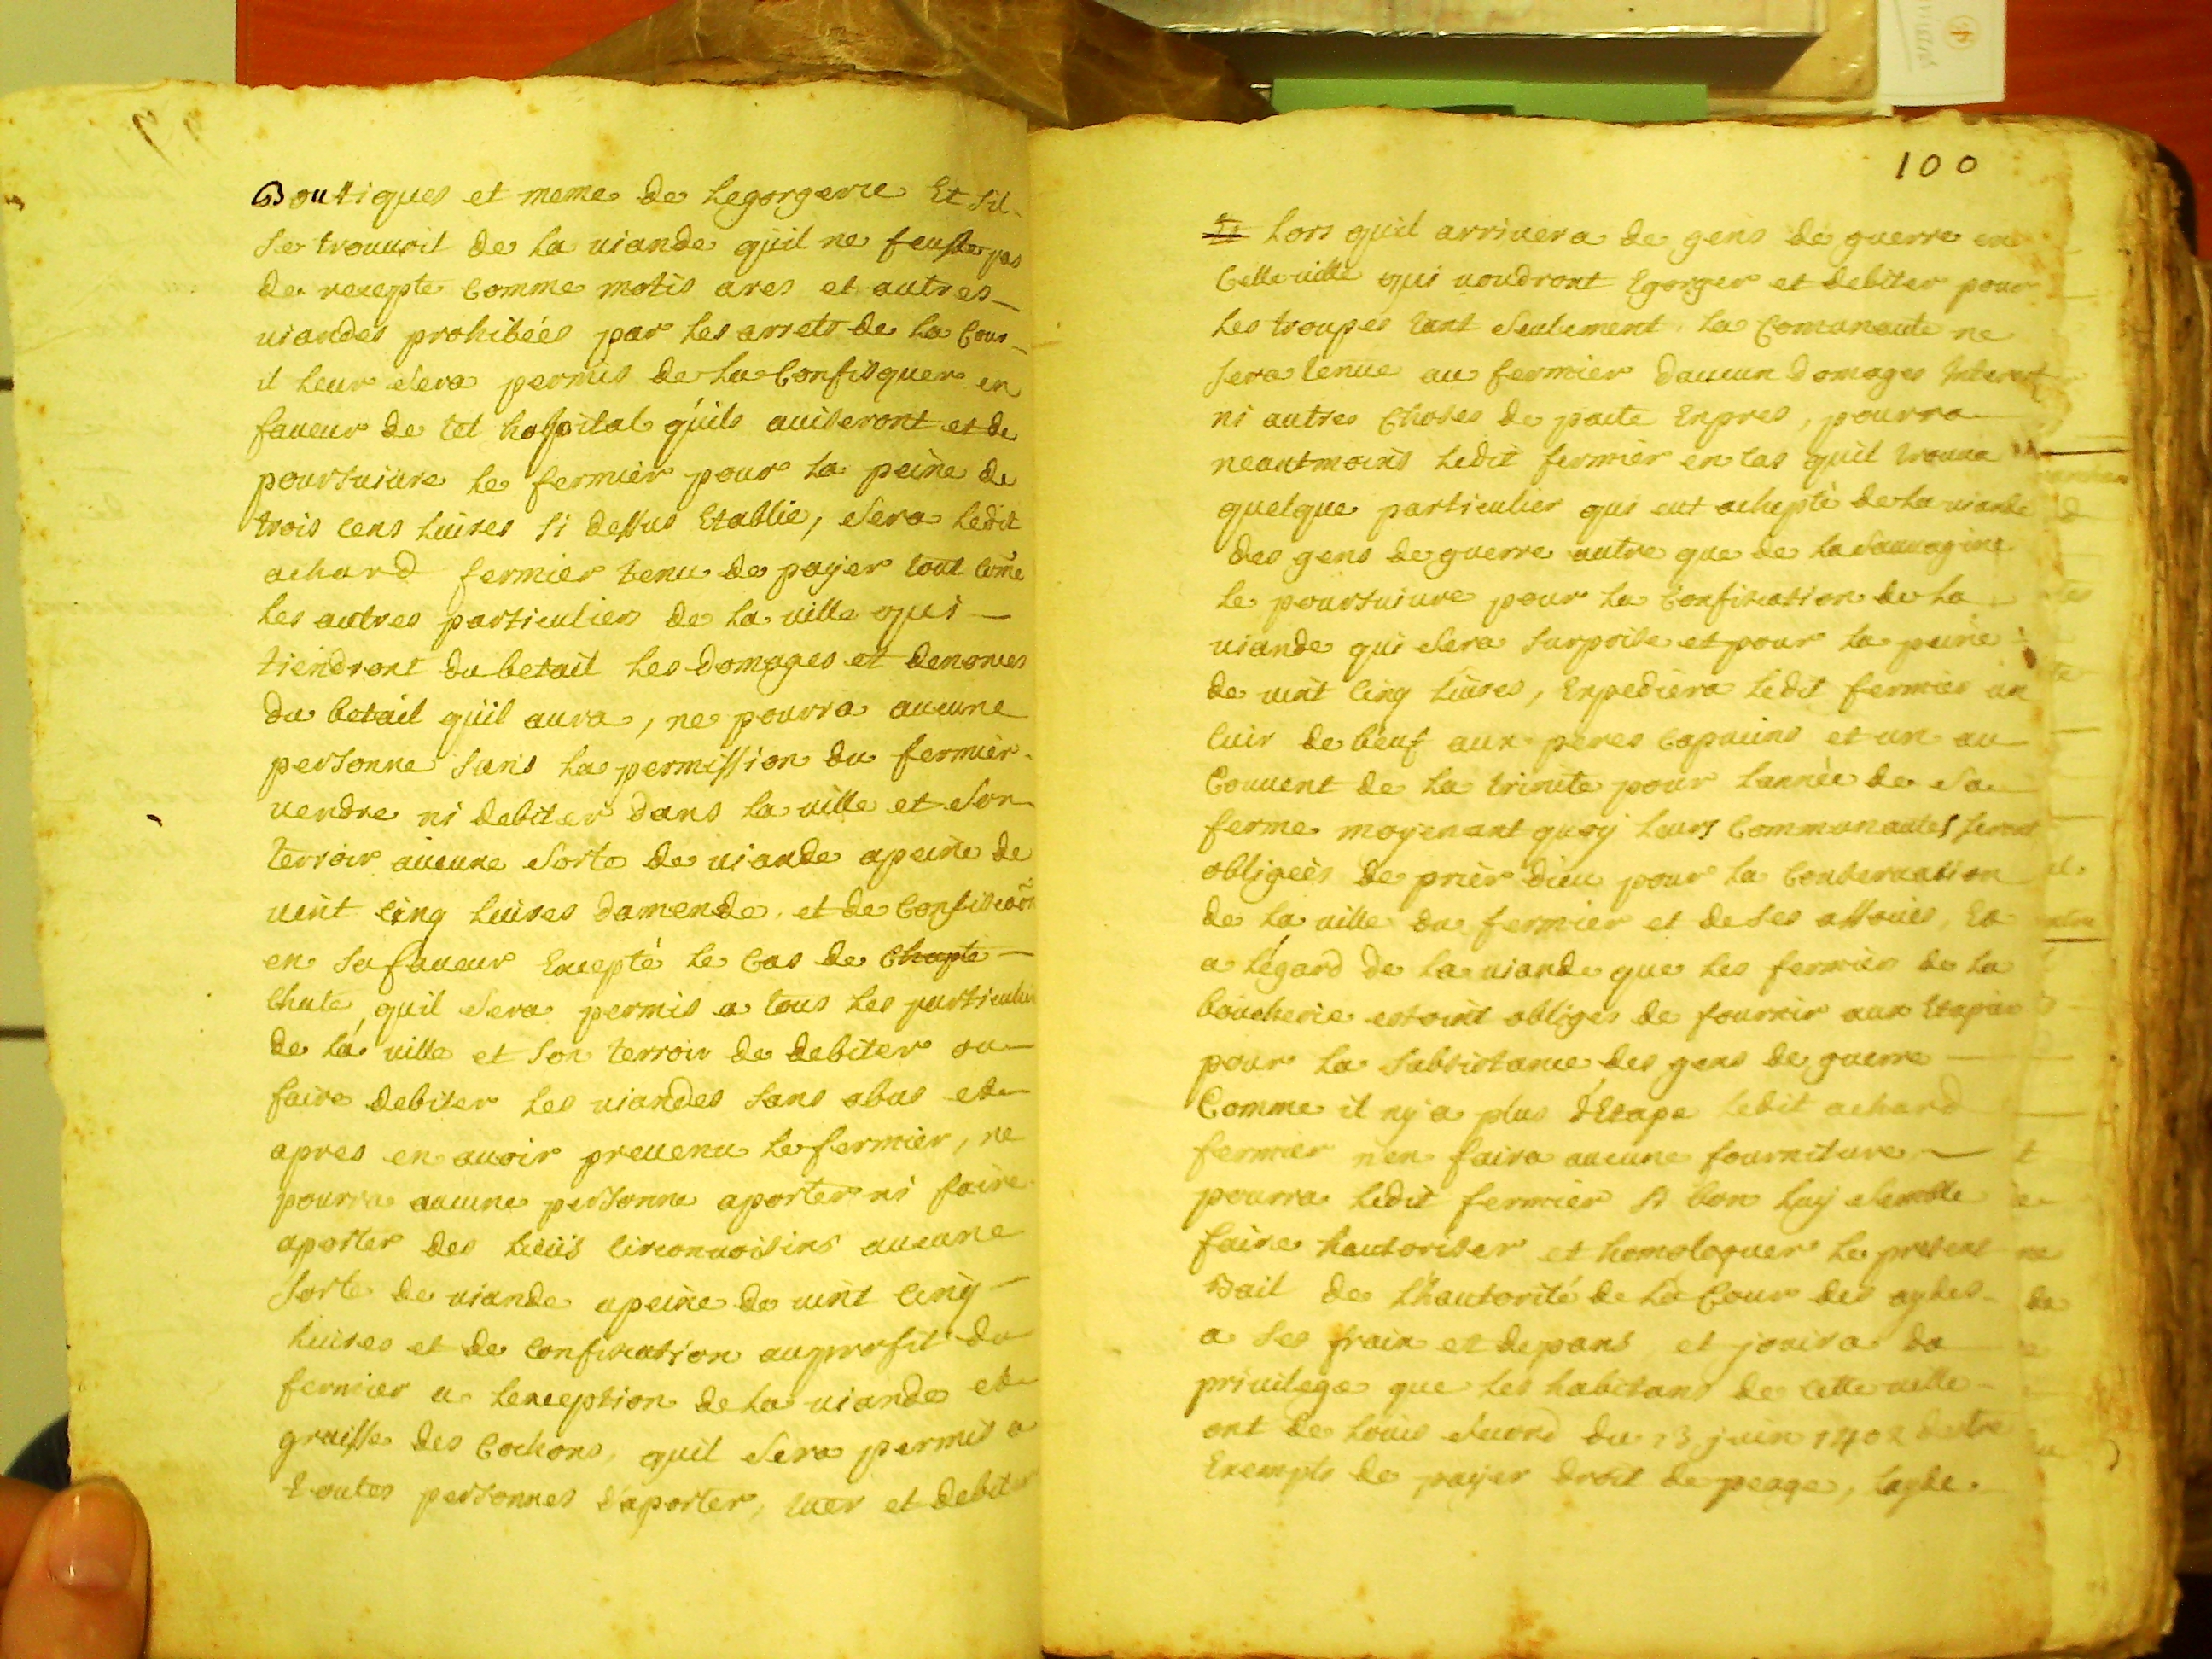 Boutiques et meme de Legorgerie Et Sil
Se trouuoit de La uiande quil ne feust pas
de recepte Comme motis ares et autres
uiandes prohibées par Les arrets de La Cour
il Leur Sera permis de La Confisquer en
faueur de tel hospital quils auiseront et de
poursuiure Le fermier pour La peine de
trois Cens Liures Si dessus Etablie, Sera Ledit
achard fermier tenu de payer tout Come
Les autres particuliers de La uille qui
tiendront du betail Les domages et
du betail quil aura, ne pourra aucune
personne Sans La permission du fermier
uendre ni debiter dans La uille et Son
terroir aucune Sorte de uiande apeine de
uint Cinq Liures damende et de Confiscaõn
en Sa faueur Excepté Le Cas de Chapte
Chute, quil Sera permis a tous Les particuliers
de La uille et Son terroir de debiter ou
faire debiter Les uiandes Sans abus et
apres en auoir preuenu Le fermier, ne
pourra aucune personne aporter ni faire
aporter des Lieus Circonuoisins aucune
Sorte de uiande apeine de uint Cinq
Liures et de Confiscation au profit du
fermier a Lexception de La uiande et
graisse des Cochons, quil Sera permis a
toutes personnes d'aporter, tuer et debiter
100
Et Lors quil arriuera de gens de guerre en
Cette uille qui uoudront Egorger et debiter pour
Les troupes tant Seulement La Comunaute ne
Sera tenue au fermier daucun domages Interest
ni autres Choses de pacte Expres, pourra
neantmoins Ledit fermier en Cas quil trouua
quelque particulier qui eut achepté de La uiande
des gens de guerre autre que de La Sauuagine
Le poursuiure pour La Confiscation de La
uiande qui Sera Surprise et pour La peine
de uint Cinq Liures, Expediera Ledit fermier un
Cuir de beuf aux peres Capucins et un au
Couuent de La trinite pour Lannée de Sa
ferme moyenant quoy Leurs Communautes Seront
obligées de prier dieu pour La Conseruation
de La uille du fermier et de Ses associés, Et
a Légard de La uiande que Les fermiers de La
boucherie estoint obliges de fournir aux Etapiers
pour La Subsistance des gens de guerre
Comme il ny a plus d'Etape Ledit achard
fermier nen faira aucune fourniture
pourra Ledit fermier Si bon Luy Semble
faire hautoriser et homologuer Le present
Bail de Lhautorité de La Cour des aydes
a Ses fraix et depans et jouira du
priuilege que Les habitans de Cette uille
ont de Louis Second du 13 juin 1402 detre
Exempts de payer droit de peage, Layde